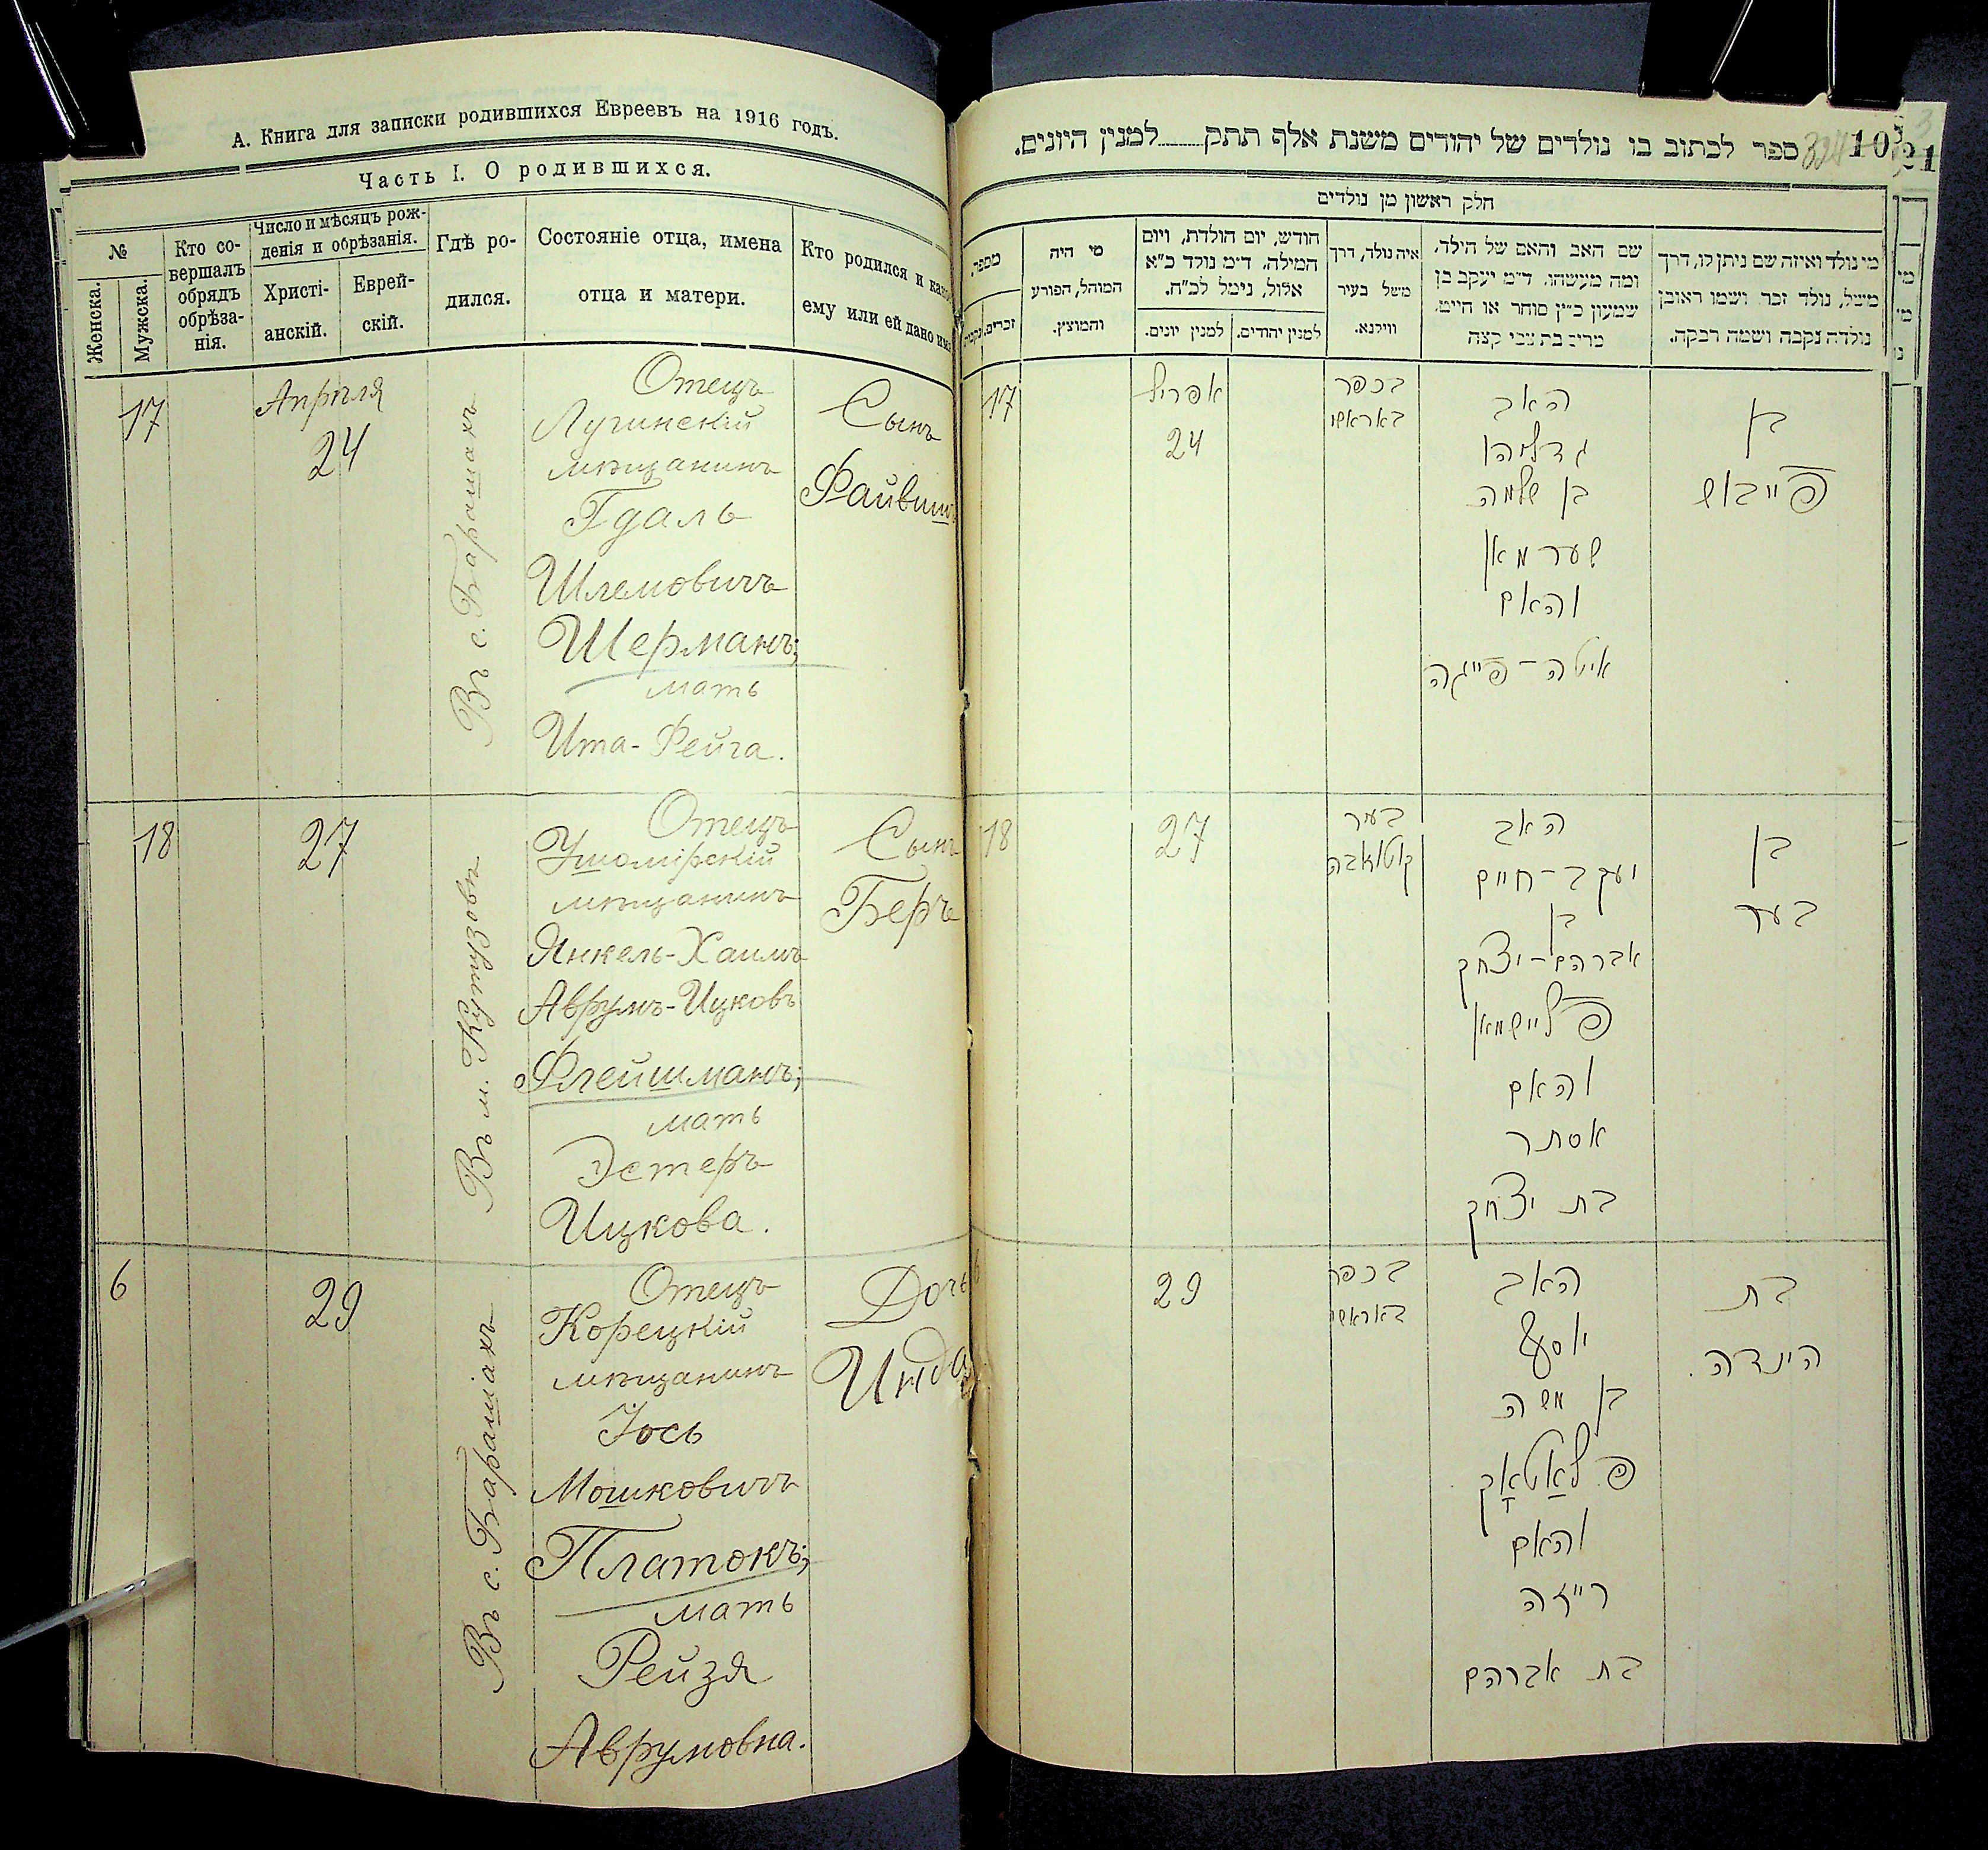 А. Книга для записки родившихся Евреевъ на 1916 годъ.
Часть I. О родившихся.
№
Женска.
Мужска.
Кто со-
вершалъ
обрядъ
обрѣза-
нія.
Число и мѣсяцъ рож-
денія и обрѣзанія.
Христі-
анскій.
Еврей-
скій.
Гдѣ ро-
дился.
Состояніе отца, имена
отца и матери.
Кто родился и какое
ему или ей дано имя
17
Апрѣля
24
Въ с. Барашахъ
Отецъ
Лугинскій
мѣщанинъ
Гдаль
Шлемовичъ
Шерманъ;
мать
Ита-Фейга.
Сынъ
Файвишъ
18
27
Въ м. Кутузовѣ
Отецъ
Ушомірскій
мѣщанинъ
Янкель-Хаимъ
Аврумъ-Ицковъ
Флейшманъ;
мать
Эстеръ
Ицкова.
Сынъ
Беръ
6
29
Въ с. Барашахъ
Отецъ
Корецкій
мѣщанинъ
Іось
Мошковичъ
Платокъ;
мать
Рейзя
Аврумовна.
Дочь
Инда
ספר לכתוב בו נולדים של יהודים משנת אלף תתק למנין היונים.
324
10
21
חלק ראשון מן נולדים
מי נולד ואיזה שם ניתן לו, דרך
משל, נולד זכר ושמו ראובן
נולדה נקבה ושמה רבקה.
שם האב והאם של הילד,
ומה מעשהו. ד״מ יעקב בן
שמעון כ״ץ סוחר או חייט,
מרים בת צבי קצה
איה נולד, דרך
משל בעיר
ווילנא.
חודש, יום הולדת, ויום
המילה. ד״מ נולד כ״א
אלול, נימל לכ״ח.
למנין יהודים.
למנין יונים.
מי היה
המוהל, הפורע
והמוצץ.
מספר.
זכרים.
17
אפריל
24
בכפר
באראשי
האב
גדליהו
בן שלמה
שערמאן
והאם
איטה-פייגה
בן
פייבוש
18
27
בעיר
קוטוזאבה
האב
יעקב-חיים
בן
אברהם-יצחק
פליישמאן
והאם
אסתר
בת יצחק
בן
בער
6
29
בכפר
באראשי
האב
יוסף
בן משה
פלאטאק
והאם
רייזה
בת אברהם
בת
הינדה.